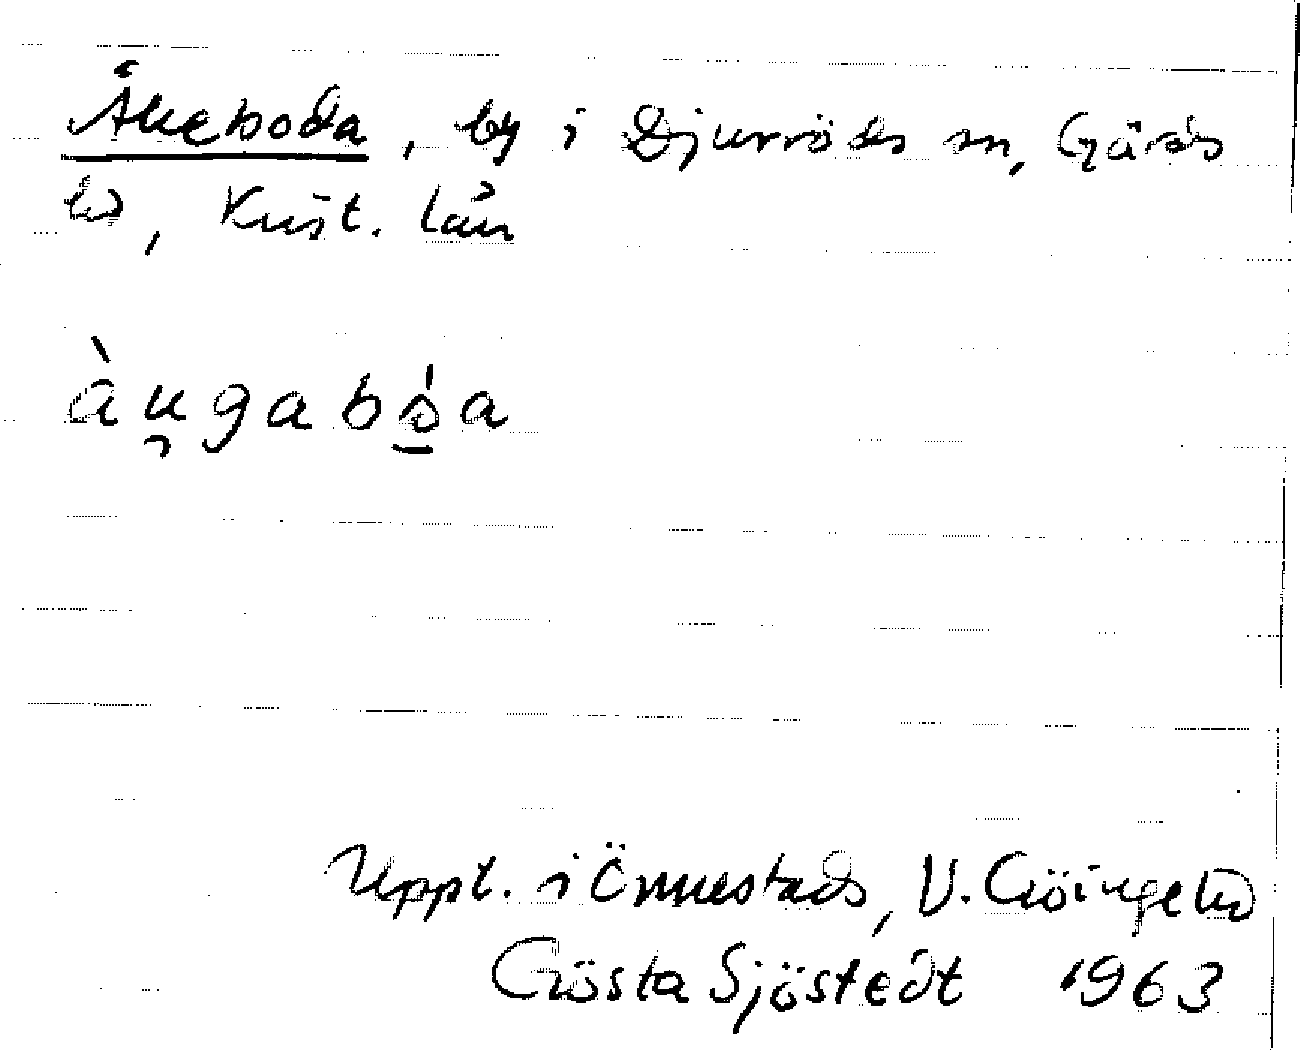 Åkeboda, by i Djurröds sn, Gärds
hd, Krist. län
àu̯gabs̲̍a
Uppt. i Önnestads, V. Göinge hd
Gösta Sjöstedt 1963